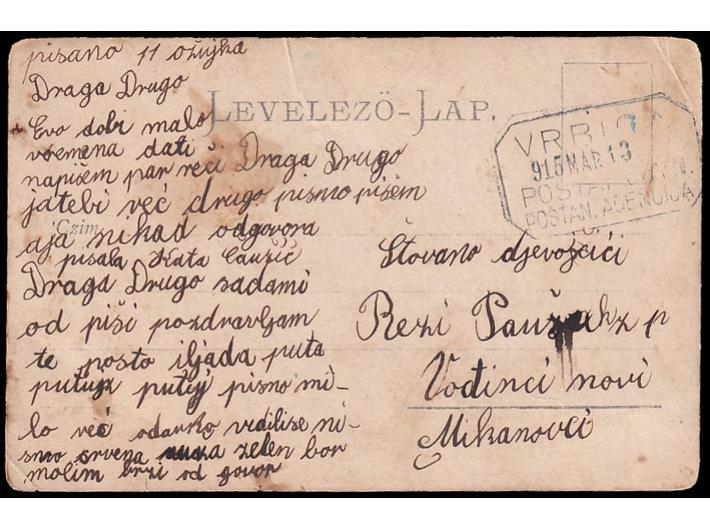 pisano 11 ožujka
Draga Drugo
LEVELEZŐ-LAP.
Evo dobi malo
vremena dati
napišem par reči Draga Drugo
jatebi več drugo pismo pišem
aja nikad odgovora
Czim
pisala Kata
Draga Drugo sadami
od piši pozdravljam
te posto iljada puta
putuj putuj pismo mi-
lo več odavko vidilise ni-
smo crvena ruža zelen bor
molim brzi od govor
915 MAR 13
POŠTAN. AGENCIJA
Štovano djevojčici
Rezi
Vođinci novi
Mikanovci